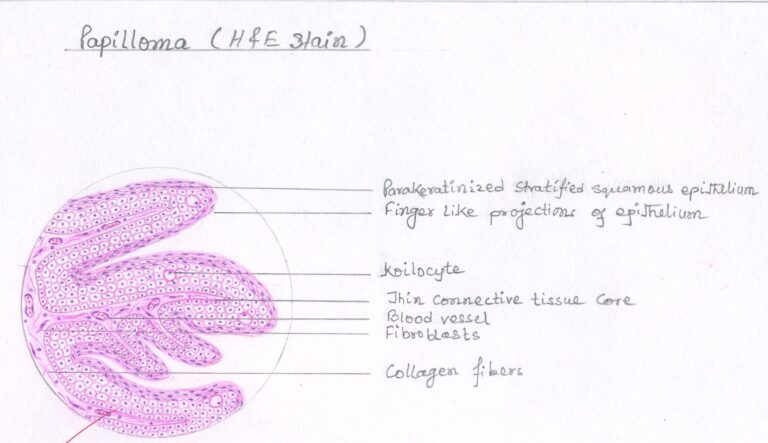 Papilloma (H&E Stain)
Parakeratinized Stratified squamous epithelium
Finger like projections of epithelium
Koilocyte
Thin connective tissue core
Blood vessel
Fibroblasts
Collagen fibers